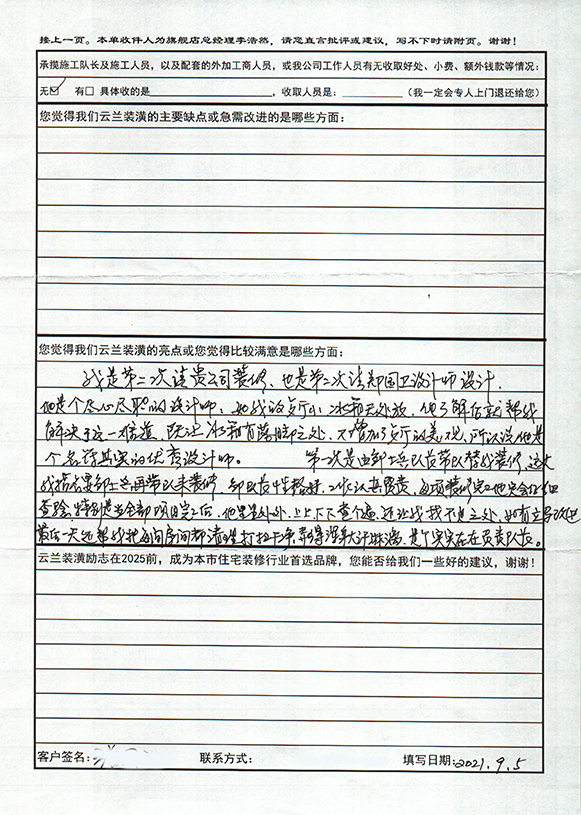 接上一页。本单收件人为旗舰店总经理李浩然，请您直言批评或建议，写不下时请附页。谢谢！
承揽施工队长及施工人员，以及配套的外加工商人员，或我公司工作人员有无收取好处、小费、额外钱款等情况：
无☑ 有□ 具体收的是 ，收取人员是： （我一定会专人上门退还给您）
您觉得我们云兰装潢的主要缺点或急需改进的是哪些方面：
您觉得我们云兰装潢的亮点或您觉得比较满意是哪些方面：
我是第二次请贵公司装修，也是第二次请郑国卫设计师设计.
他是个尽心尽职的设计师，如我的餐厅小，冰箱无处放，他了解后就帮我
解决了这一难道，既让冰箱有落脚之处，又增加了餐厅的美观，所以说他是
个名符其实的优秀设计师。 第一次是由邹士兵队长带队替我装修，这次
我搭名要邹士兵再带队来装修 邹队长性格好，工作认真负责，每项装修完工他都会仔细
查验，特别是当全部项目完工后，他里里外外，上上下下查个遍，还让我找不足之处，如有立马改进
最后一天还帮我把每间房间都清理打扫干净，热得浑身大汗淋漓，是个实实在在负责队长。
云兰装潢励志在2025前，成为本市住宅装修行业首选品牌，您能否给我们一些好的建议，谢谢！
客户签名： 联系方式： 填写日期：2021.9.5